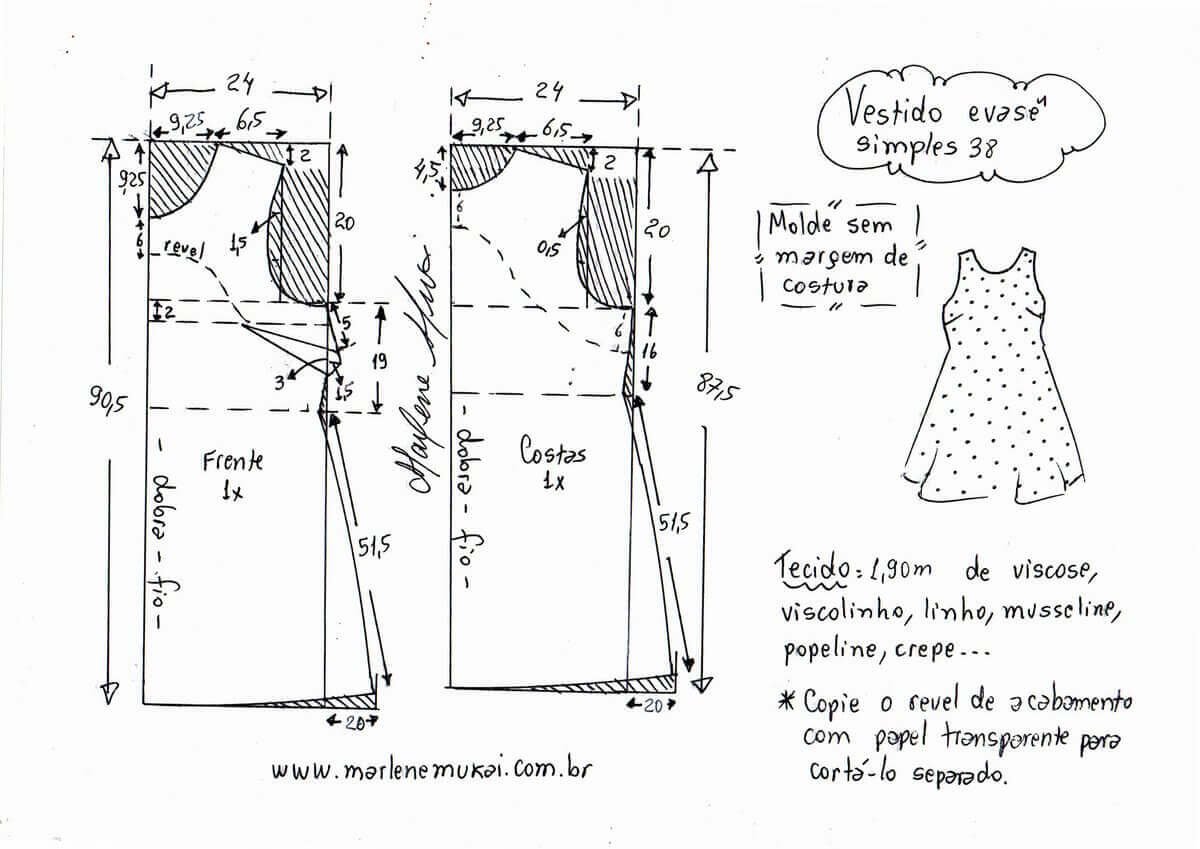 24
9,25
6,5
2
9,25
6
revel
1,5
20
2
5
19
3
1,5
90,5
Frente
1x
- dobra - fio -
51,5
20
Marlene Mukai
24
9,25
6,5
2
4,5
6
0,5
20
6
16
87,5
Costas
1x
- dobra - fio -
51,5
20
www.marlenemukai.com.br
Vestido evasê
simples 38
Molde sem
margem de
costura
Tecido: 1,90m de viscose,
viscolinho, linho, musseline,
popeline, crepe...
* Copie o revel de acabamento
com papel transparente para
cortá-lo separado.